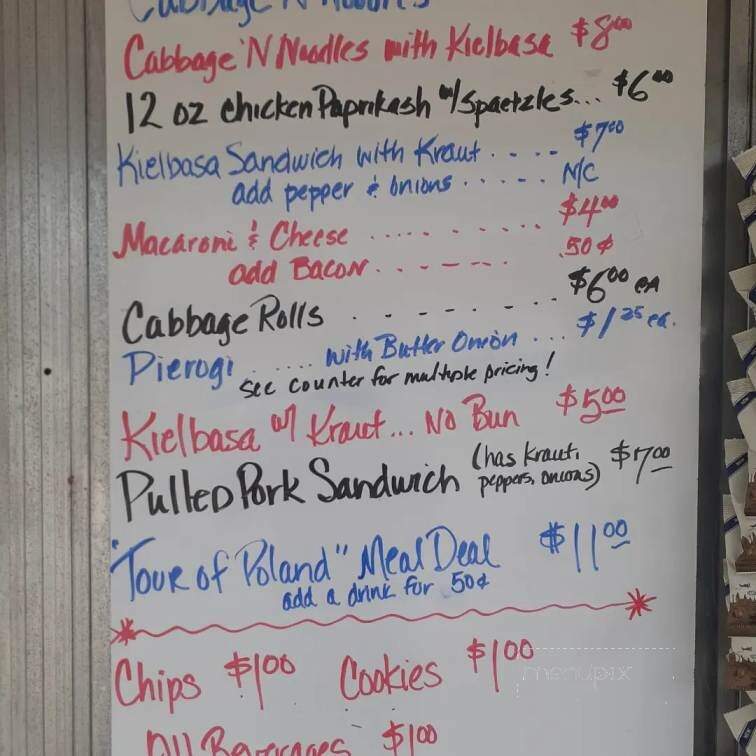 Cabbage 'N Noodles
Cabbage 'N Noodles with Kielbasa $8.00
12 oz Chicken Paprikash w/Spaetzles... $6.00
Kielbasa Sandwich with Kraut . . . . $7.00
add pepper & onions . . . . . . N/C
Macaroni & Cheese . . . . . . . . . $4.00
add Bacon . . - - - - - .50¢
Cabbage Rolls . . - . - . - .. $6.00 ea
Pierogi ........ with Butter Onion ... $1.25 ea.
See counter for multiple pricing!
Kielbasa w/ Kraut... No Bun $5.00
Pulled Pork Sandwich (has Kraut, peppers, onions) $7.00
"Tour of Poland" Meal Deal $11.00
add a drink for 50¢
Chips $1.00 Cookies $1.00
menupix
All Beverages $1.00